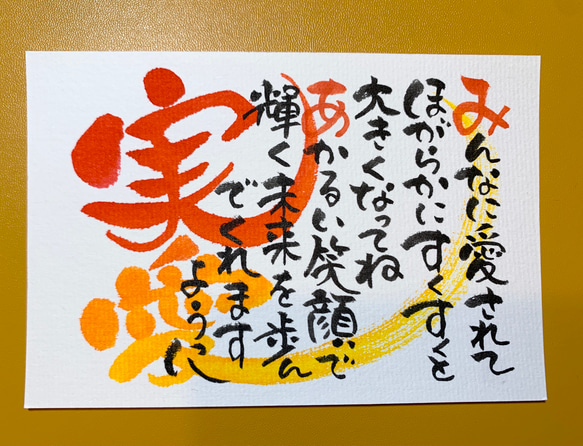 みんなに愛されて
ほがらかにすくすくと
大きくなってね
あかるい笑顔で
輝く未来を歩ん
でくれます
ように
実愛